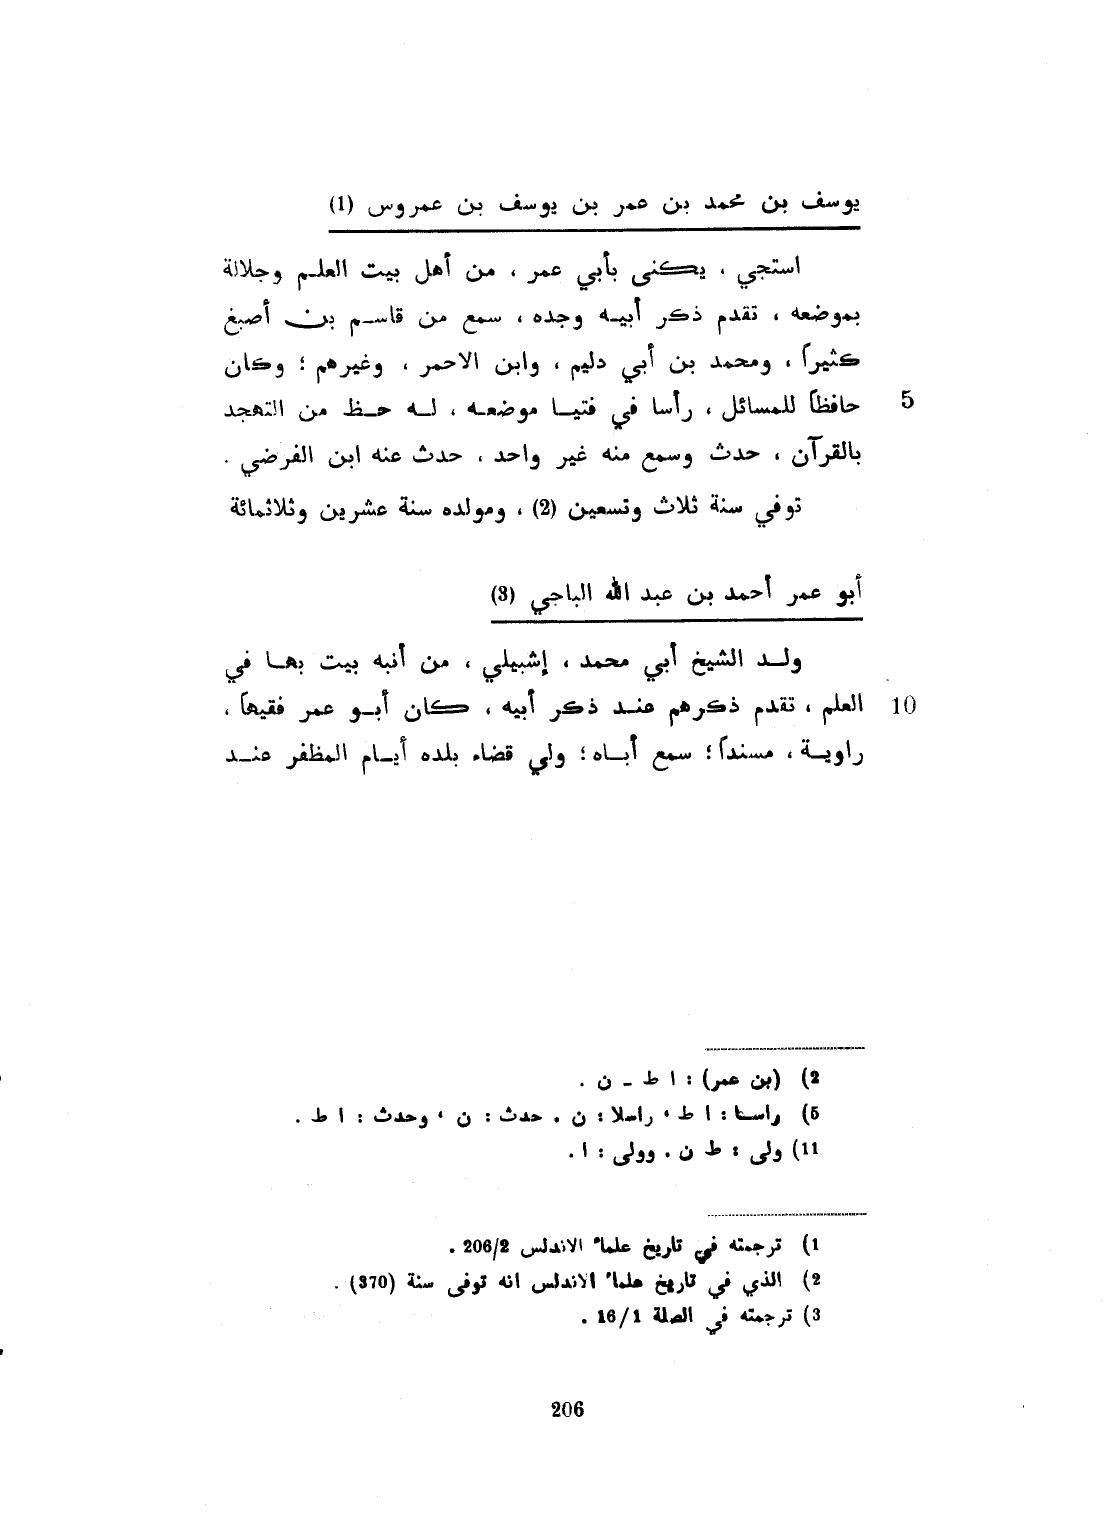 يوسف بن محمد بن عمر بن يوسف بن عمروس (1)
استجي ، يكنى بأبي عمر ، من أهل بيت العلم وجلالة
بموضعه ، تقدم ذكر أبيه وجده ، سمع من قاسم بن أصبغ
كثيراً ، ومحمد بن أبي دليم ، وابن الاحمر ، وغيرهم ؛ وكان
5 حافظاً للمسائل ، رأسا في فتيا موضعه ، له حظ من التهجد
بالقرآن ، حدث وسمع منه غير واحد ، حدث عنه ابن الفرضي .
توفي سنة ثلاث وتسعين (2) ، ومولده سنة عشرين وثلاثمائة
أبو عمر أحمد بن عبد الله الباجي (3)
ولد الشيخ أبي محمد ، إشبيلي ، من أنبه بيت بها في
10 العلم ، تقدم ذكرهم عند ذكر أبيه ، كان أبو عمر فقيهاً ،
راوية ، مسنداً ؛ سمع أباه ؛ ولي قضاء بلده أيام المظفر عند
2) (بن عمر) : ا ط - ن .
5) راسا : ا ط ، راسلا : ن . حدث : ن ، وحدث : ا ط .
11) ولى : ط ن . وولى : ا .
1) ترجمته في تاريخ علماء الاندلس 206/2 .
2) الذي في تاريخ علماء الاندلس انه توفى سنة (370) .
3) ترجمته في الصلة 16/1 .
206